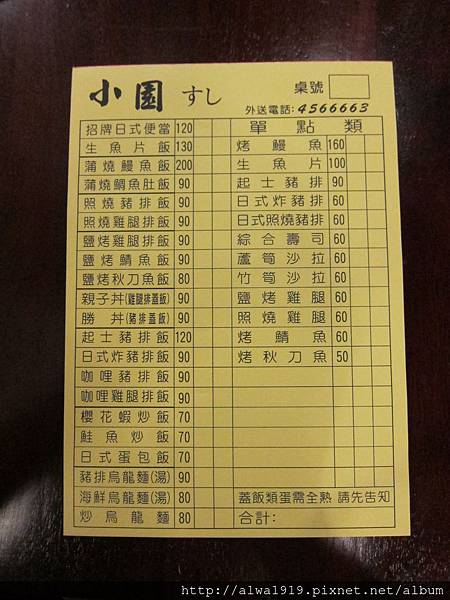 小園 すし
桌號
外送電話: 4566663
招牌日式便當 120
生魚片飯 130
蒲燒鰻魚飯 200
蒲燒鯛魚肚飯 90
照燒豬排飯 90
照燒雞腿排飯 90
鹽烤雞腿排飯 90
鹽烤鯖魚飯 90
鹽烤秋刀魚飯 80
親子丼(雞腿排蓋飯) 90
勝丼(豬排蓋飯) 90
起士豬排飯 120
日式炸豬排飯 90
咖哩豬排飯 90
咖哩雞腿排飯 90
櫻花蝦炒飯 70
鮭魚炒飯 70
日式蛋包飯 70
豬排烏龍麵(湯) 90
海鮮烏龍麵(湯) 80
炒烏龍麵 80
單點類
烤鰻魚 160
生魚片 100
起士豬排 90
日式炸豬排 60
日式照燒豬排 60
綜合壽司 60
蘆筍沙拉 60
竹筍沙拉 60
鹽烤雞腿 60
照燒雞腿 60
烤鯖魚 60
烤秋刀魚 50
蓋飯類蛋需全熟 請先告知
合計:
http://alwa1919.pixnet.net/album